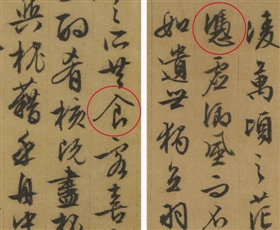 凌萬頃之茫
憑虛御風而不
如遺世獨立羽
之所共食客喜
酌肴核既盡杯
與枕藉乎舟中